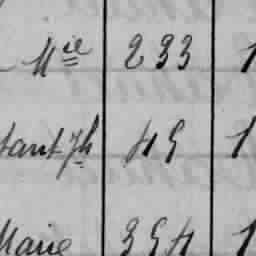 Mie 233 1
tant Jh 45 1
Marie 354 1